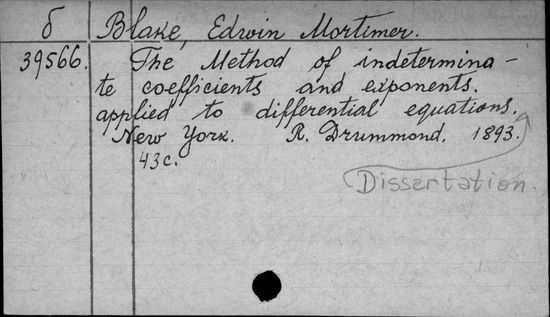 б Blake, Edwin Mortimer.
39566. The Method of indetermina-
te coefficients and exponents.
applied to differential equations.
New York. R. Drummond. 1893.
43c.
Dissertation.